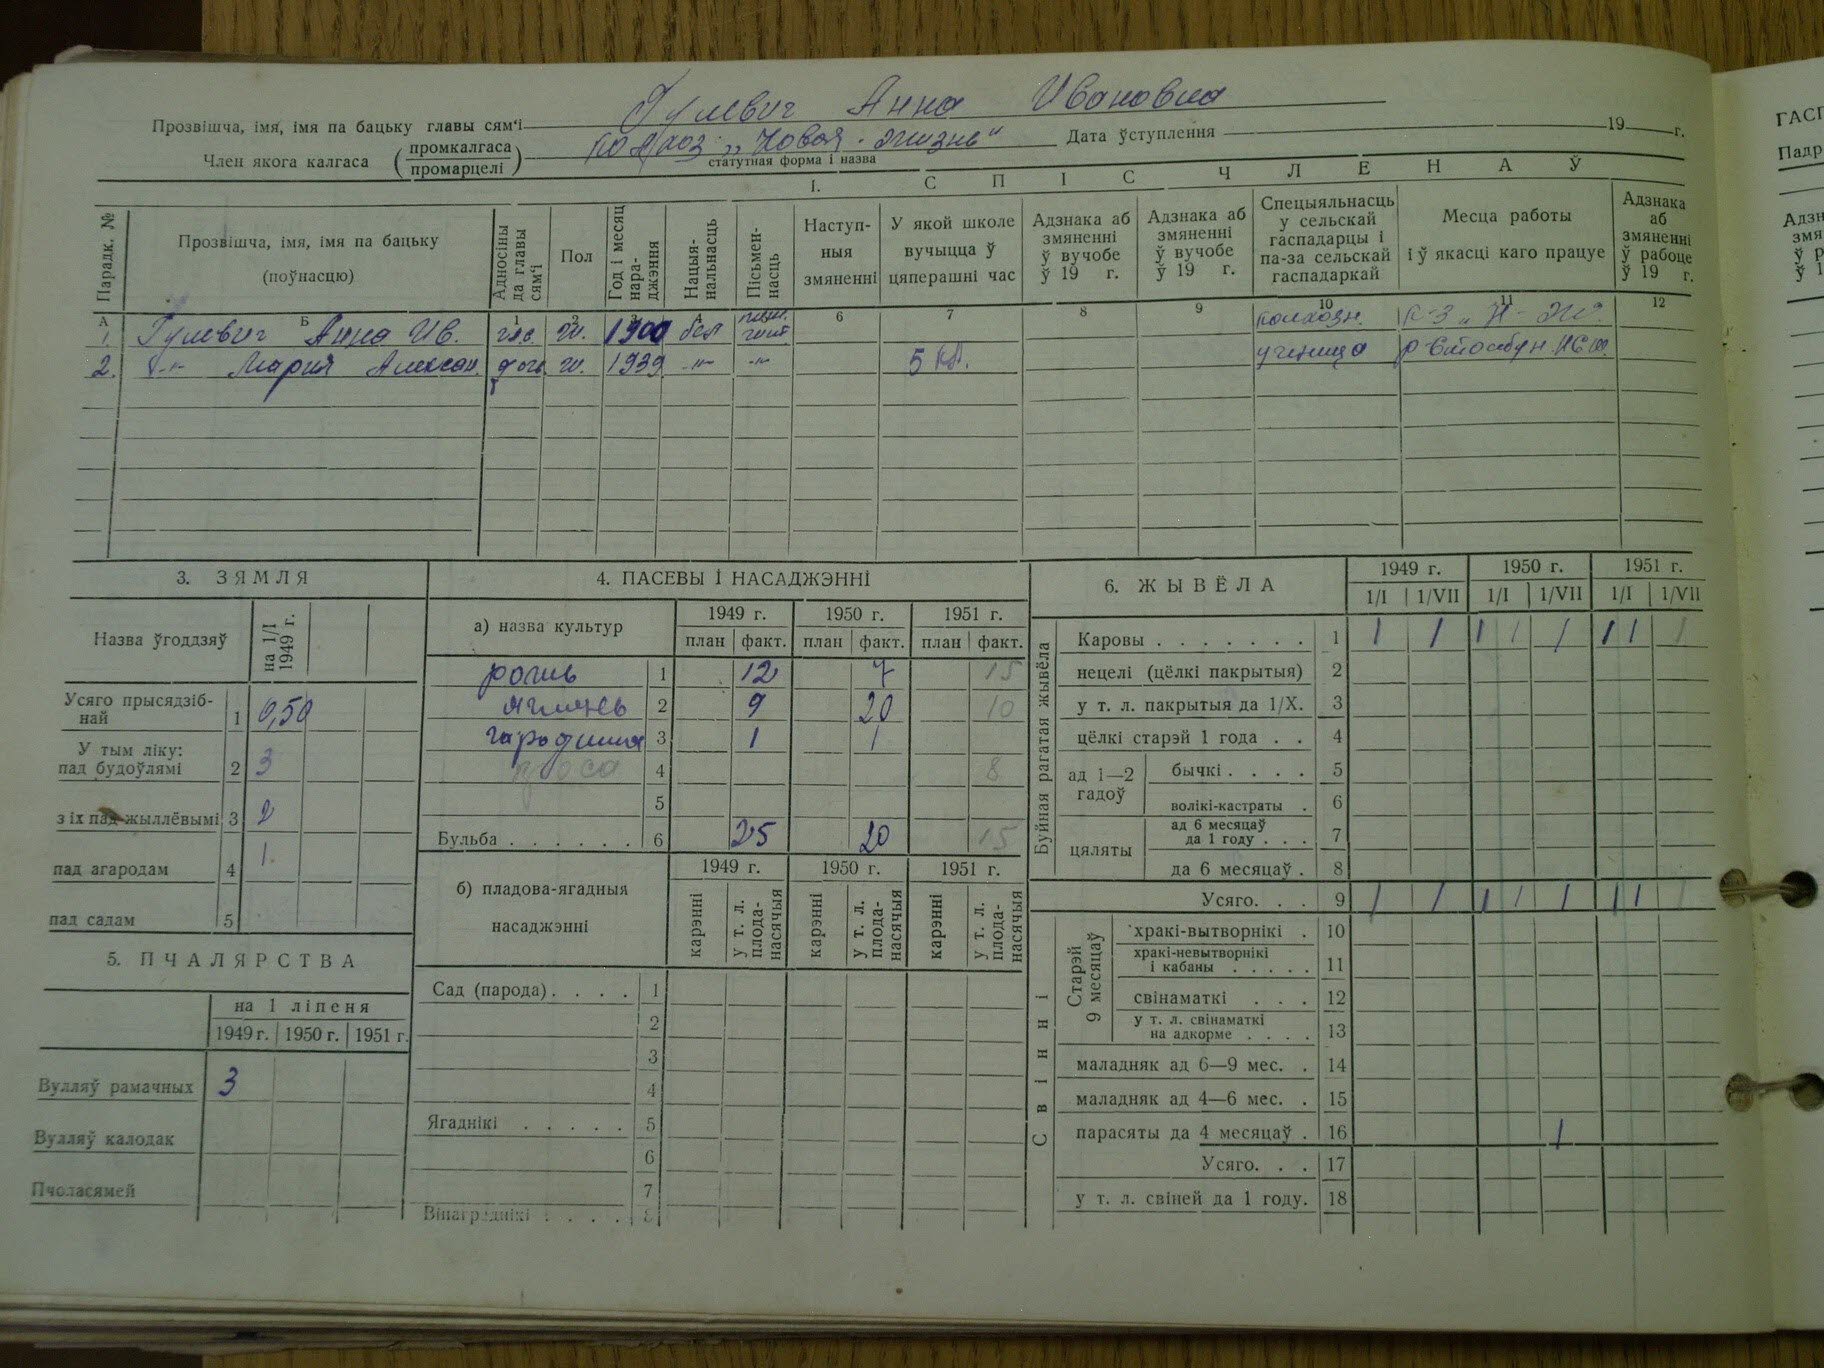 Прозвішча, імя, імя па бацьку главы сям'і Гулевич Анна Ивановна
Член якога калгаса (промкалгаса промарцелі) колхоз „Новая жизнь“ Дата ўступлення 19 г.
статутная форма і назва
І. СПІС ЧЛЕНАЎ
Парадк. № | Прозвішча, імя, імя па бацьку (поўнасцю) | Адносіны да главы сям'і | Пол | Год і месяц нараджэння | Нацыянальнасць | Пісьменнасць | Наступныя змяненні | У якой школе вучыцца ў цяперашні час | Адзнака аб змяненні ў вучобе ў 19 г. | Адзнака аб змяненні ў вучобе ў 19 г. | Спецыяльнасць у сельскай гаспадарцы і па-за сельскай гаспадаркай | Месца работы і ў якасці каго працуе | Адзнака аб змяненні ў рабоце ў 19 г.
А Б 1 2 3 4 5 6 7 8 9 10 11 12
1. Гулевич Анна Ив. гла. ж. 1900 бел колхозн. к-з „Н-Ж“
2. -"- Мария Алексан. дочь ж. 1939 -"- -"- 5 кл. ученица
3. ЗЯМЛЯ
Назва ўгоддзяў | на 1/I 1949 г.
Усяго прысядзібнай 1 0,50
У тым ліку:
пад будоўлямі 2 3
з іх пад жыллёвымі 3 2
пад агародам 4 1
пад садам 5
5. ПЧАЛЯРСТВА
на 1 ліпеня
1949 г. 1950 г. 1951 г.
Вулляў рамачных 3
Вулляў калодак
Пчоласямей
4. ПАСЕВЫ І НАСАДЖЭННІ
а) назва культур | 1949 г. | 1950 г. | 1951 г.
план факт. план факт. план факт.
рожь 1 12 7 15
ячмень 2 9 20 10
гародніна 3 1 1
проса 4 8
5
Бульба 6 25 20 15
б) пладова-ягадныя насаджэнні | 1949 г. | 1950 г. | 1951 г.
карэнні | у т. л. пладанасячыя | карэнні | у т. л. пладанасячыя | карэнні | у т. л. пладанасячыя
Сад (парода) . . . . 1
2
3
4
Ягаднікі . . . . . 5
6
7
Вінаграднікі . . . . 8
6. ЖЫВЁЛА | 1949 г. | 1950 г. | 1951 г.
1/I 1/VII 1/I 1/VII 1/I 1/VII
Буйная рагатая жывёла
Каровы . . . . . . . 1 1 1 1 1 1 1 1 1
нецелі (цёлкі пакрытыя) 2
у т. л. пакрытыя да 1/X. 3
цёлкі старэй 1 года . . 4
ад 1—2 гадоў
бычкі . . . . 5
волікі-кастраты . 6
цяляты
ад 6 месяцаў да 1 году . . . 7
да 6 месяцаў . 8
Усяго. . . 9 1 1 1 1 1 1 1 1
Свінні
Старэй 9 месяцаў
хракі-вытворнікі . 10
хракі-невытворнікі і кабаны . . . . . 11
свінаматкі . . . 12
у т. л. свінаматкі на адкорме . . . . 13
маладняк ад 6—9 мес. . 14
маладняк ад 4—6 мес. . 15
парасяты да 4 месяцаў . 16 1
Усяго. . . 17
у т. л. свіней да 1 году. 18